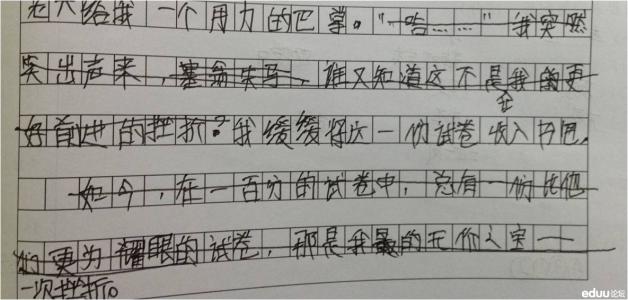 老天给我一个用力的巴掌。"哈……"我突然
笑出声来，塞翁失马，谁又知道这不是我的更
会
好前进的挫折？我缓缓将这一份试卷收入书包。
如今，在一百分的试卷中，总有一份比他
们更为耀眼的试卷，那是我最的无价之宝——
一次挫折。
eduu论坛